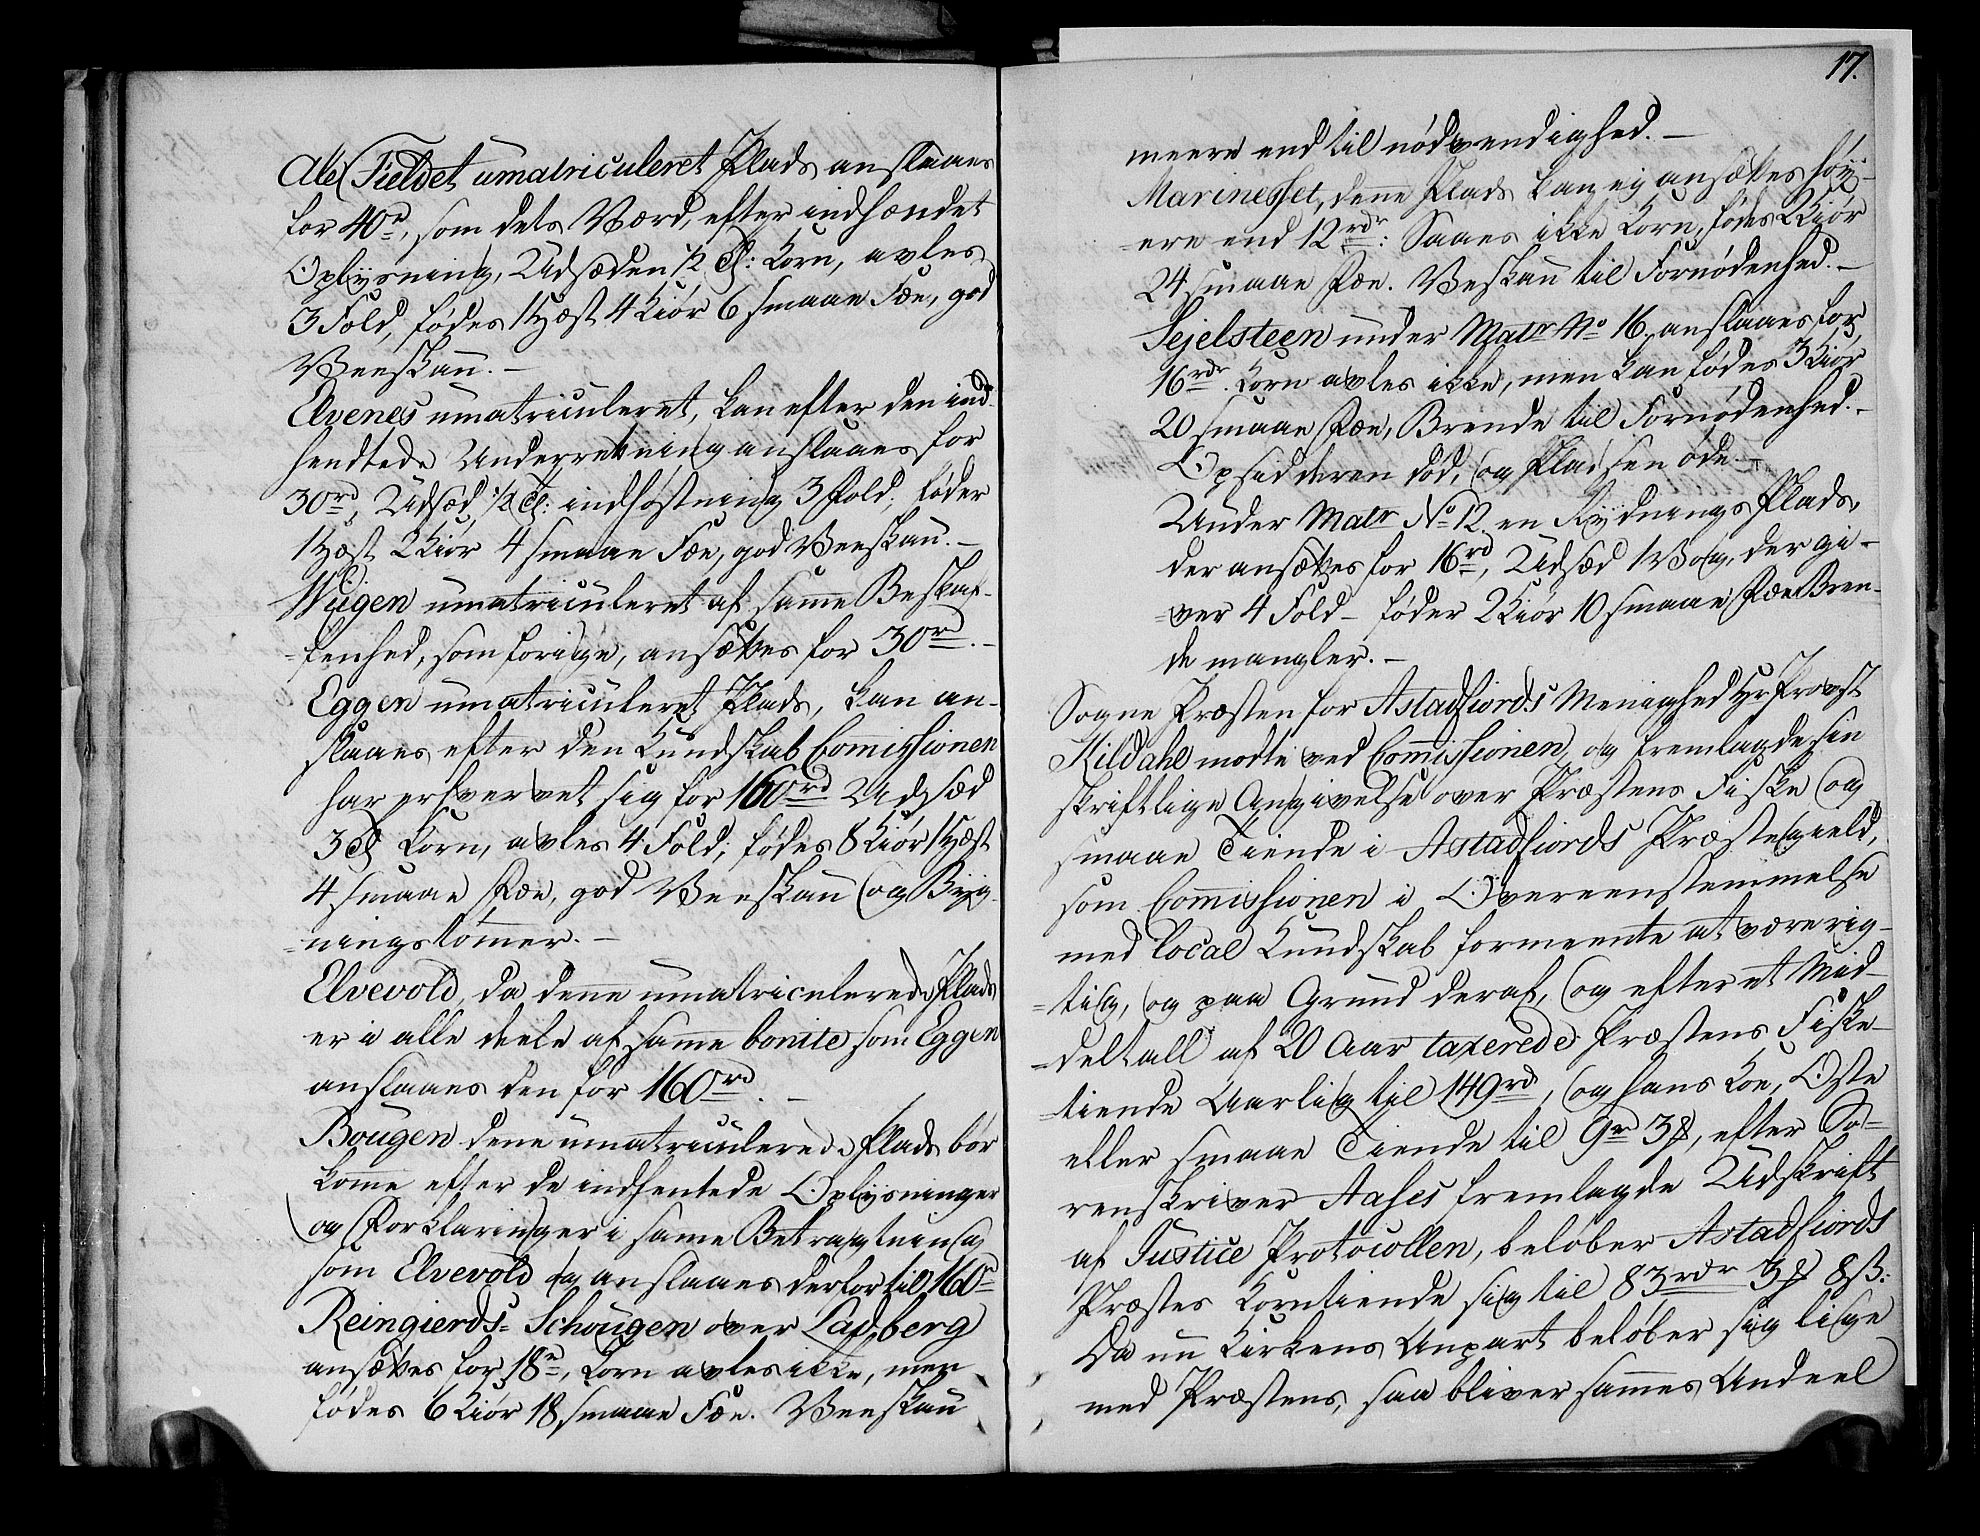 Ale Fieldet umatriculeret Plads anslaaes
for 40r, som dets Værd, efter indhændet
Oplysning, Udsæden 1/2 Tl: Korn, avles
3 Fold, fødes 1 Hæst 4 Kiör 6 smaae Fæe, god
Veeskau. –
Elvenes umatriculeret, kan efter den ind-
hendtede Underretning anslaaes for
30rd, Udsæd 1/2 Tl: indhöstning 3 Fold, föder
1 Hæst 2 Kiör 4 smaae Fæe, god Veeskau. –
Wiigen umatriculeret af samme Beskaf-
=fenhed, som forige, ansættes for 30rd. –
Eggen umatriculeret Plads, kan an-
slaaes efter den Kundskab Commissionen
har erhvervet sig for 160rd Udsæd
3 Tl Korn, avles 4 Fold, fødes 8 Kiör 1 Hæst
4 smaae Fæe, god Veeskau og Byg-
=ningstömer. –
Elvevold, da denne umatriculerede Plads
er i alle deele af samme bonite som Eggen
anslaaes den for 160rd. –
Bougen denne umatriculerede Plads bör
komme efter de indhentede Oplysninger
og Forklaringer i samme Betragtning
som Elvevold og anslaaes derfor til 160r
Reingierds= Schougen over Ladberg
ansættes for 18r, Korn avles ikke, men
fødes 6 Kiör 18 smaae Fæe. Veeskau
17.
meere end til nödvendighed. –
Marinesset, denne Plads kan ej ansættes höy-
=ere end 12rdr: Saaes ikke Korn, fødes 2 Kiör
24 smaae Fæe. Veskau til Fornödenhed. –
Sejelsteen under Matr No 16 anslaaes for
16rdr. Korn avles ikke, men kan fødes 3 Kiör
20 smaae Fæe, Brende til Fornödenhed. –
Opsidderen död, og Pladsen öde. –
Under Matr No 12 en Rydnings Plads,
der ansættes for 16rd, Udsæd 1 Vog, der gi-
=ver 4 Fold – föder 2 Kiör 10 smaae Fæe Bren-
de mangler. –
Sogne Præsten for Astadfiords Menighed Hr Provst
Kildahl mödte ved Commissionen, og fremlagde sin
skriftlige Angivelse over Præstens Fiske og
smaae Tiende i Astadfiords Præstegield,
som Commissionen i Overeenstemmelse
med local Kundskab formeente at være rig-
=tig, og paa Grund deraf, og efter et Mid-
=deltall af 20 Aar taxerede Præstens Fiske-
=tiende Aarlig til 149rd, og hans Koe, Oste
eller smaae Tiende til 9r 3 , efter So-
renskriver Aases fremlagde Udskrift
af Justice Protocollen, belöber Astadfiords
Præstes Korntiende sig til 83rdr 3 8ß:
Da nu Kirkens Anpart belöber sig lige
med Præstens, saa bliver sammes Andeel